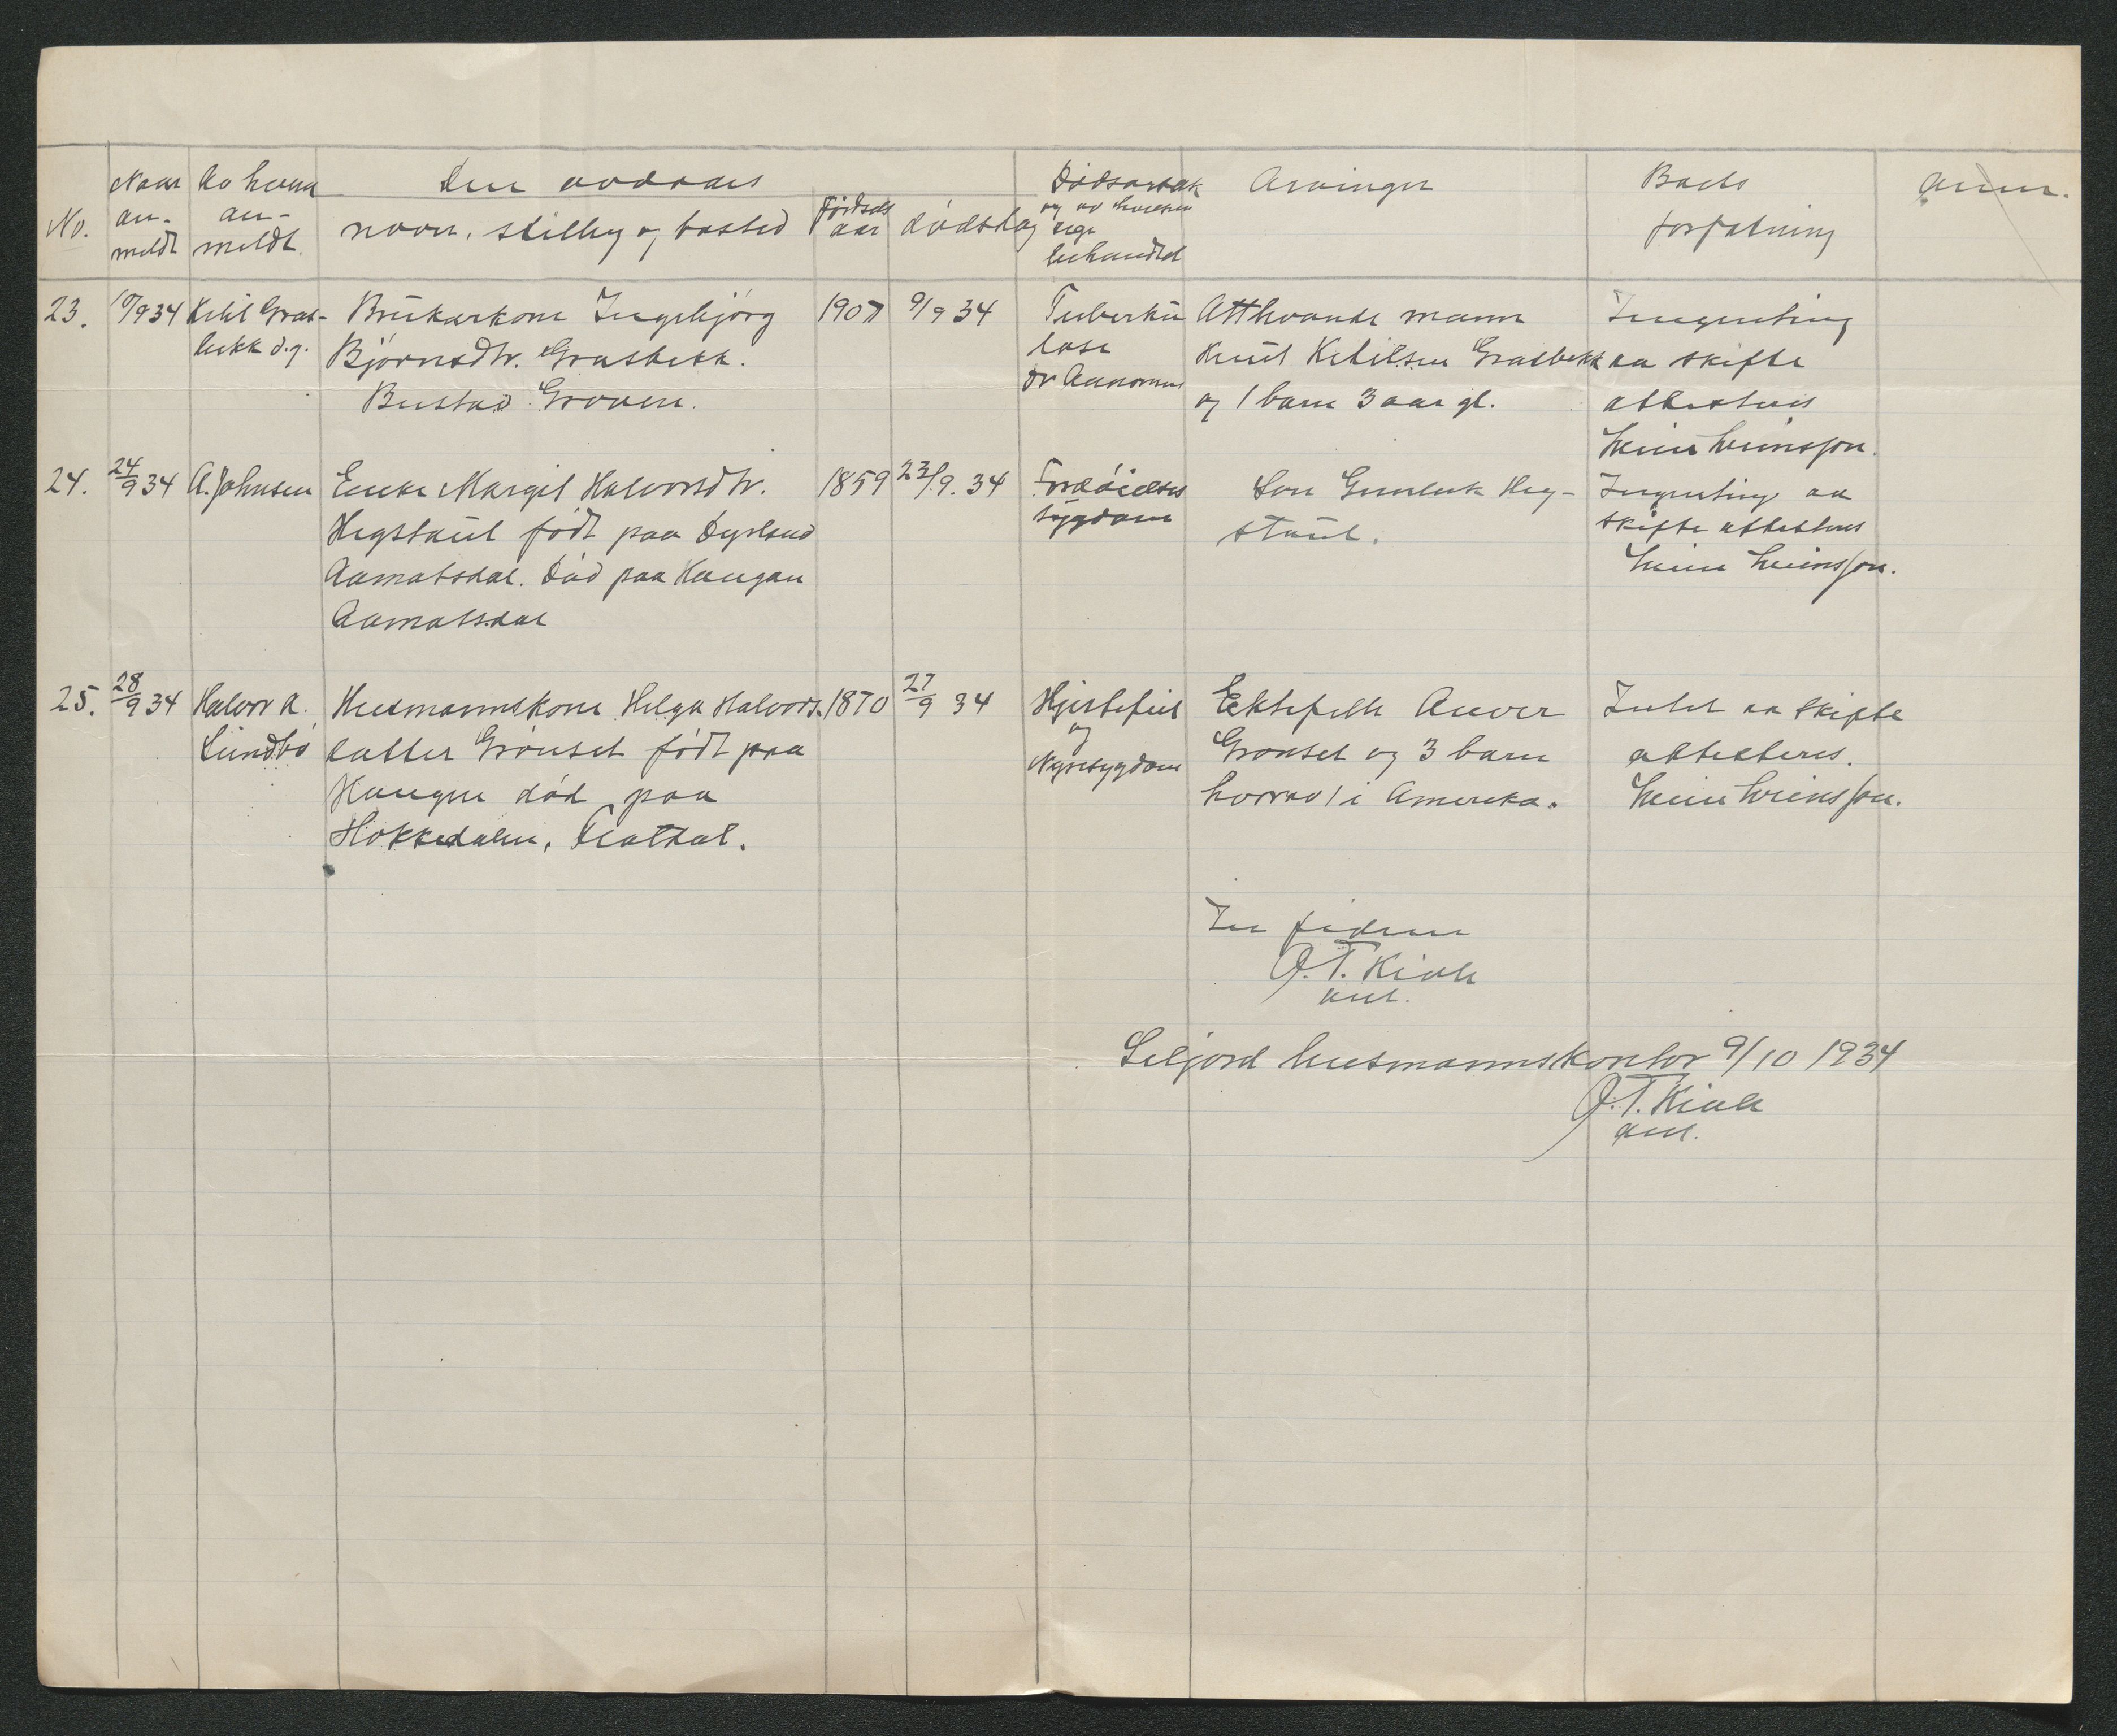 No.
Naar
an-
meldt
Av hvem
an-
meldt
Den avdødes
navn, stilling og bosted
Fødsels
aar
dødsdag
Dødsaarsak
og av hvilken
læge
behandlet
Arvinger
Boets
forfatning
Anm.
23.
10/9 34
Ketil Gras-
bekk d.y.
Brukarkone Ingebjørg
Bjørnsdtr. Grasbekk.
Bustad Groven.
1907
9/9 34
Tuberku
lose
dr Aanonsen
Attlevande mann
Knut Ketilsen Grasbekk
og 1 barn 3 aar gl.
Ingenting
aa skifte
attesteres
24.
24/9 34
A. Johnsen
Enke Margit Halvorsdtr.
Hegstaul født paa Dyrland
Aamotsdal. Død paa Haugan
Aamotsdal
1859
23/9. 34
Fordøielses
sygdom
Søn Gunleik Heg-
staul.
Ingenting aa
skifte attesteres
25.
28/9 34
Halvor A.
Lundbø
Husmannskone Helga Halvors-
datter Grønset født paa
Haugen død paa
Hokkedalen, Flatdal.
1870
27/9 34
Hjertefeil
og
Nyresygdom
Ektefelle Anver
Grønset og 3 barn
hvorav 1 i Amerika.
Intet aa skifte
attesteres.
In fidem
O.T. Kivle
ant.
Seljord lensmannskontor 9/10 1934
O.T. Kivle
ant.